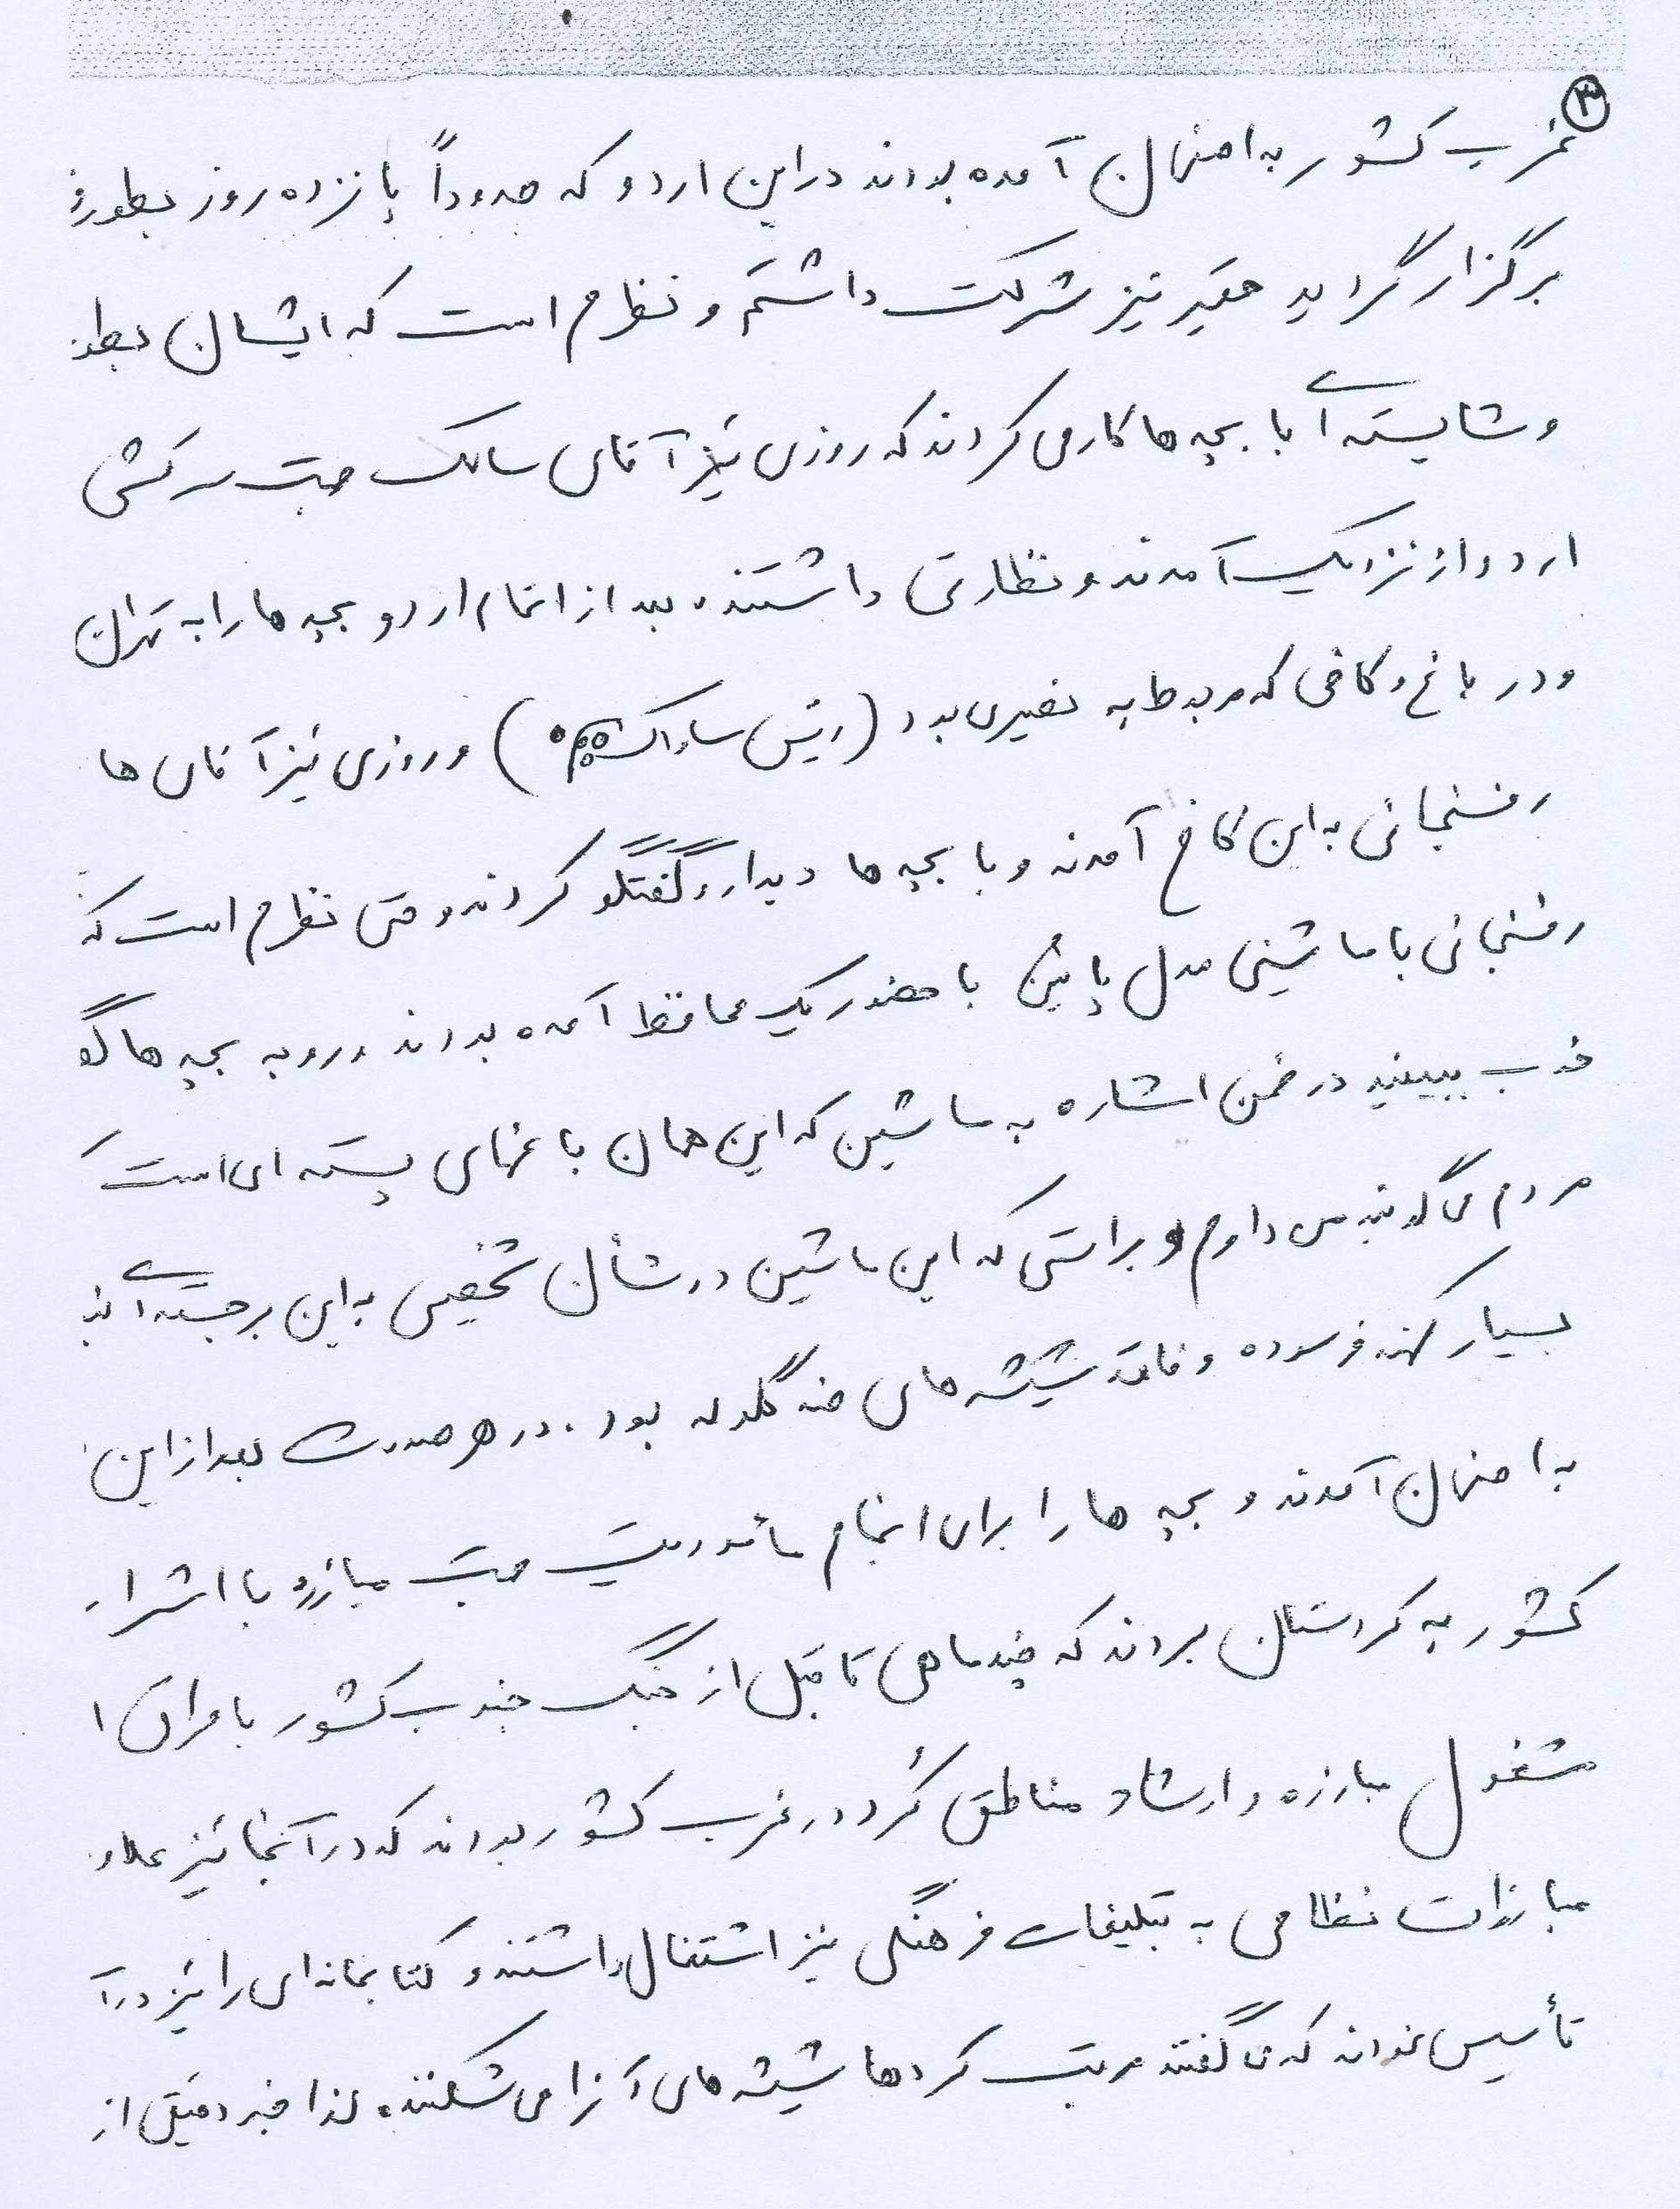 ۳
غرب کشور به اصفهان آمده بودند در این اردو که حدوداً پانزده روز بطور
برگزار گردید حقیر نیز شرکت داشتم و نظرم است که ایشان بطور
و شایسته‌ای با بچه ها کار می کردند که روزی نیز آقای سالک جهت سرکشی
اردو از نزدیک آمدند و نظارتی داشتند، بعد از اتمام اردو بچه ها را به تهران
و در باغ و کاخی که مربوط به نصیری بود (رئیس ساواک) و روزی نیز آقای ها
رفسنجانی به این کاخ آمدند و با بچه ها دیدار و گفتگو کردند و حتی نظرم است که
رفسنجانی با ماشینی مدل پائین با حضور یک محافظ آمده بودند و رو به بچه ها گ
خوب ببینید در ضمن اشاره به ماشین که این همان باغهای پسته ای است
مردم می گویند من دارم و براستی که این ماشین در شأن شخصی به این برجسته‌ای نب
بسیار کهنه فرسوده و فاقد شیشه های ضد گلوله بود. در هر صورت بعد از این
به اصفهان آمدند و بچه ها را برای انجام مأموریت جهت مبارزه با اشرار
کشور به کردستان بردند که چند ماهی تا قبل از جنگ جنوب کشور با عراق ا
مشغول مبارزه و ارشاد مناطق کُرد در غرب کشور بودند که در آنجا نیز علاو
مبارزات نظامی به تبلیغات فرهنگی نیز اشتغال داشتند و کتابخانه ای را نیز در آ
تأسیس نمودند که می گفتند مرتب کردها شیشه های آنرا می شکنند، لذا خبر دقیق از